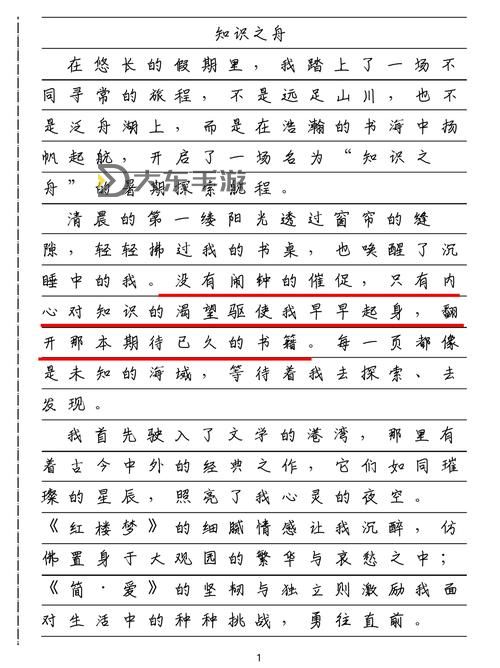 知识之舟
在悠长的假期里，我踏上了一场不
同寻常的旅程，不是远足山川，也不
是泛舟湖上，而是在浩瀚的书海中扬
帆起航，开启了一场名为“知识之
舟”的暑期探索航程。
大东手游
清晨的第一缕阳光透过窗帘的缝
隙，轻轻拂过我的书桌，也唤醒了沉
睡中的我。没有闹钟的催促，只有内
心对知识的渴望驱使我早早起身，翻
开那本期待已久的书籍。每一页都像
是未知的海域，等待着我去探索、去
发现。
我首先驶入了文学的港湾，那里有
着古今中外的经典之作，它们如同璀
璨的星辰，照亮了我心灵的夜空。
《红楼梦》的细腻情感让我沉醉，仿
佛置身于大观园的繁华与哀愁之中；
《简·爱》的坚韧与独立则激励我面
对生活中的种种挑战，勇往直前。
1